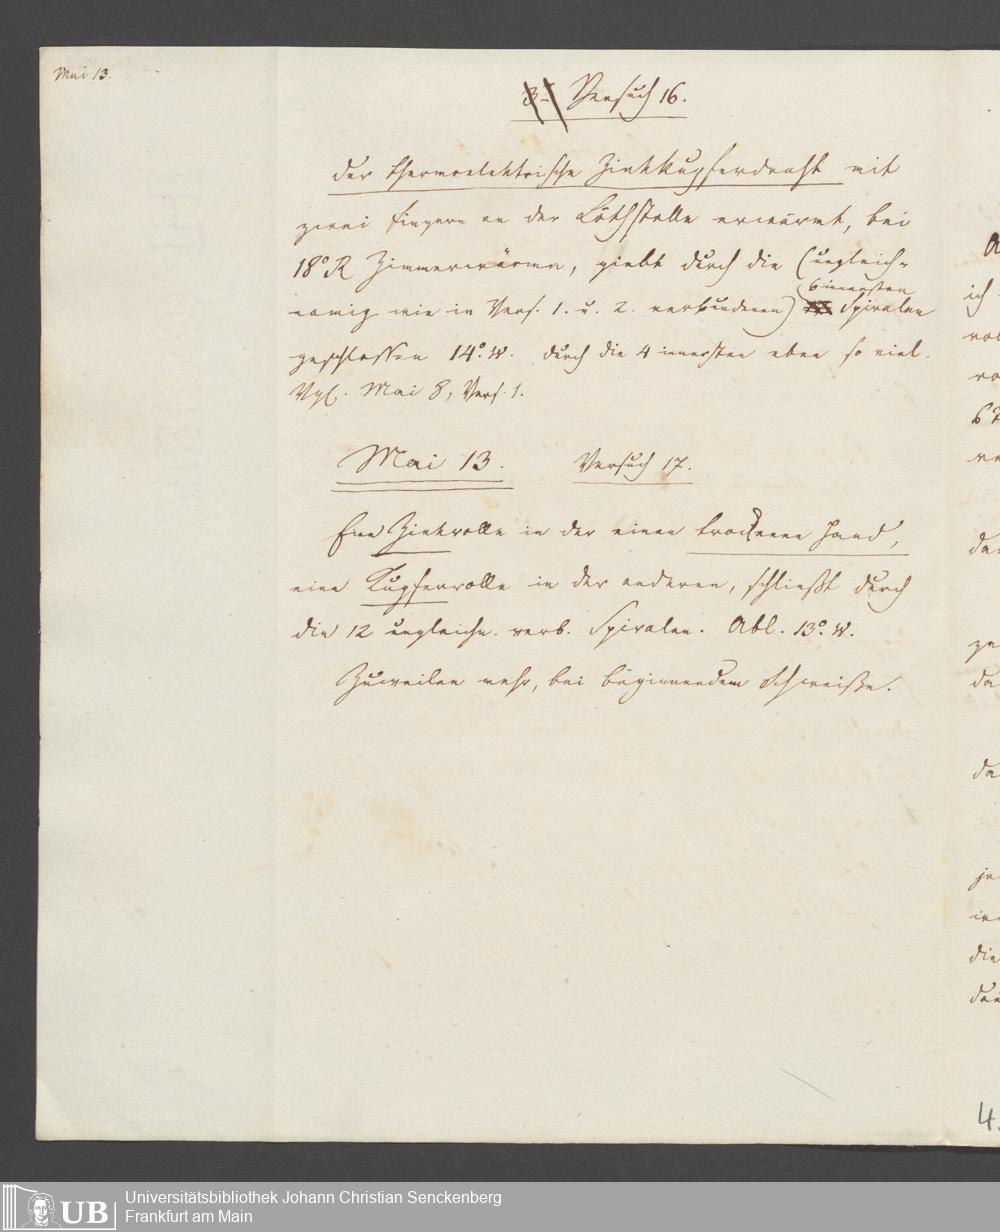 Mai 13.
Versuch 16.
der thermoelektrische Zinkkupferdraht mit
zwei Fingern an der Löthstelle erwärmt, bei
18° R Zimmerwärme, giebt durch die (ungleich-
6 innersten
namig wie in Vers. 1. u. 2. verbundenen) Spiralen
geschlossen 14°. W. durch die 4 innersten eben so viel.
Vgl. Mai 8, Vers. 1.
Mai 13. Versuch 17.
Eine Zinkrolle in der einen trockenen Hand,
eine Kupferrolle in der anderen, schließt durch
die 12 ungleichn. verb. Spiralen. Abl. 13°. W.
Zuweilen mehr, bei beginnendem Schweiße.
ich
die
4.
UB
Universitätsbibliothek Johann Christian Senckenberg
Frankfurt am Main